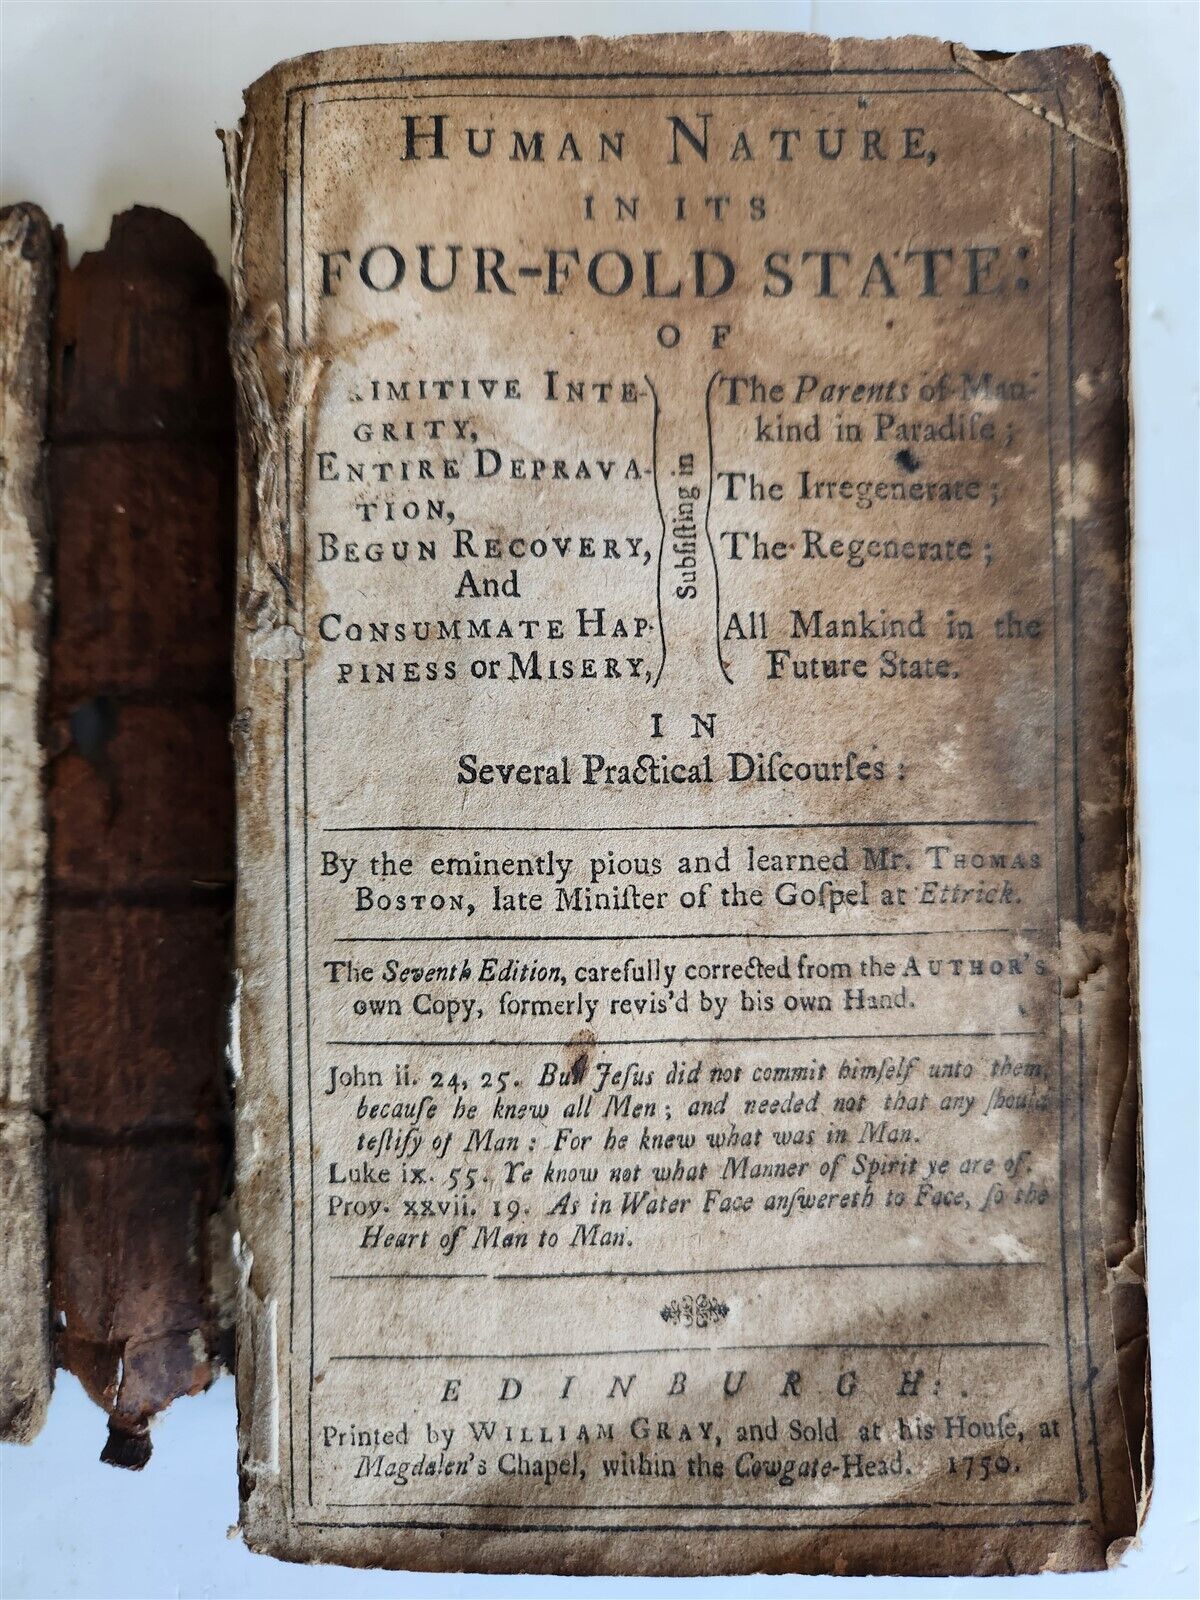 HUMAN NATURE,
IN ITS
FOUR-FOLD STATE:
OF
IMITIVE INTE-
GRITY,
ENTIRE DEPRAVA-
TION,
BEGUN RECOVERY,
And
CONSUMMATE HAP-
PINESS or MISERY,
Subſiſting in
The Parents of Man-
kind in Paradiſe;
The Irregenerate;
The Regenerate;
All Mankind in the
Future State.
IN
Several Practical Diſcourſes:
By the eminently pious and learned Mr. THOMAS
BOSTON, late Miniſter of the Goſpel at Ettrick.
The Seventh Edition, carefully corrected from the AUTHOR's
own Copy, formerly revis'd by his own Hand.
John ii. 24, 25. But Jeſus did not commit himſelf unto them,
becauſe he knew all Men; and needed not that any ſhould
teſtify of Man: For he knew what was in Man.
Luke ix. 55. Ye know not what Manner of Spirit ye are of.
Prov. xxvii. 19. As in Water Face anſwereth to Face, ſo the
Heart of Man to Man.
EDINBURGH:
Printed by WILLIAM GRAY, and Sold at his Houſe, at
Magdalen's Chapel, within the Cowgate-Head. 1750.